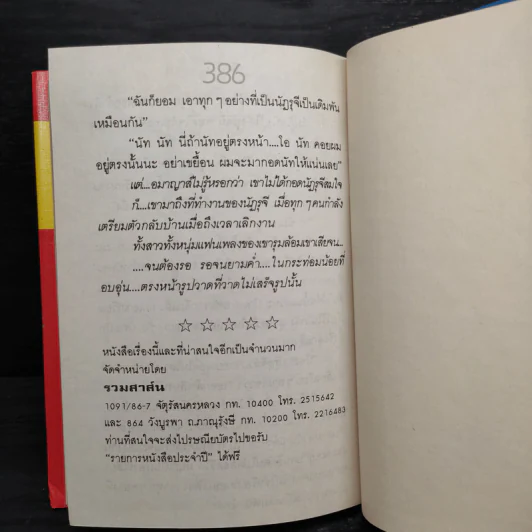 386
“ฉันก็ยอม เอาทุก ๆ อย่างที่เป็นนัฎรุจีเป็นเดิมพัน
เหมือนกัน”
“นัท นัท นี่ถ้านัทอยู่ตรงหน้า....โอ นัท คอยผม
อยู่ตรงนั้นนะ อย่าเขยื้อน ผมจะมากอดนัทให้แน่นเลย”
แต่...อมาญาส์ไม่รู้หรอกว่า เขาไม่ได้กอดนัฎรุจีสมใจ
ก็....เขามาถึงที่ทำงานของนัฎรุจี เมื่อทุก ๆ คนกำลัง
เตรียมตัวกลับบ้านเมื่อถึงเวลาเลิกงาน
ทั้งสาวทั้งหนุ่มแฟนเพลงของเขารุมล้อมเขาเสียจน..
....จนต้องรอ รอจนยามค่ำ....ในกระท่อมน้อยที่
อบอุ่น....ตรงหน้ารูปวาดที่วาดไม่เสร็จรูปนั้น
☆ ☆ ☆ ☆ ☆
หนังสือเรื่องนี้และที่น่าสนใจอีกเป็นจำนวนมาก
จัดจำหน่ายโดย
รวมสาส์น
1091/86-7 จัตุรัสนครหลวง กท. 10400 โทร. 2515642
และ 864 วังบูรพา ถ.ภาณุรังษี กท. 10200 โทร. 2216483
ท่านที่สนใจจะส่งไปรษณียบัตรไปขอรับ
“รายการหนังสือประจำปี” ได้ฟรี